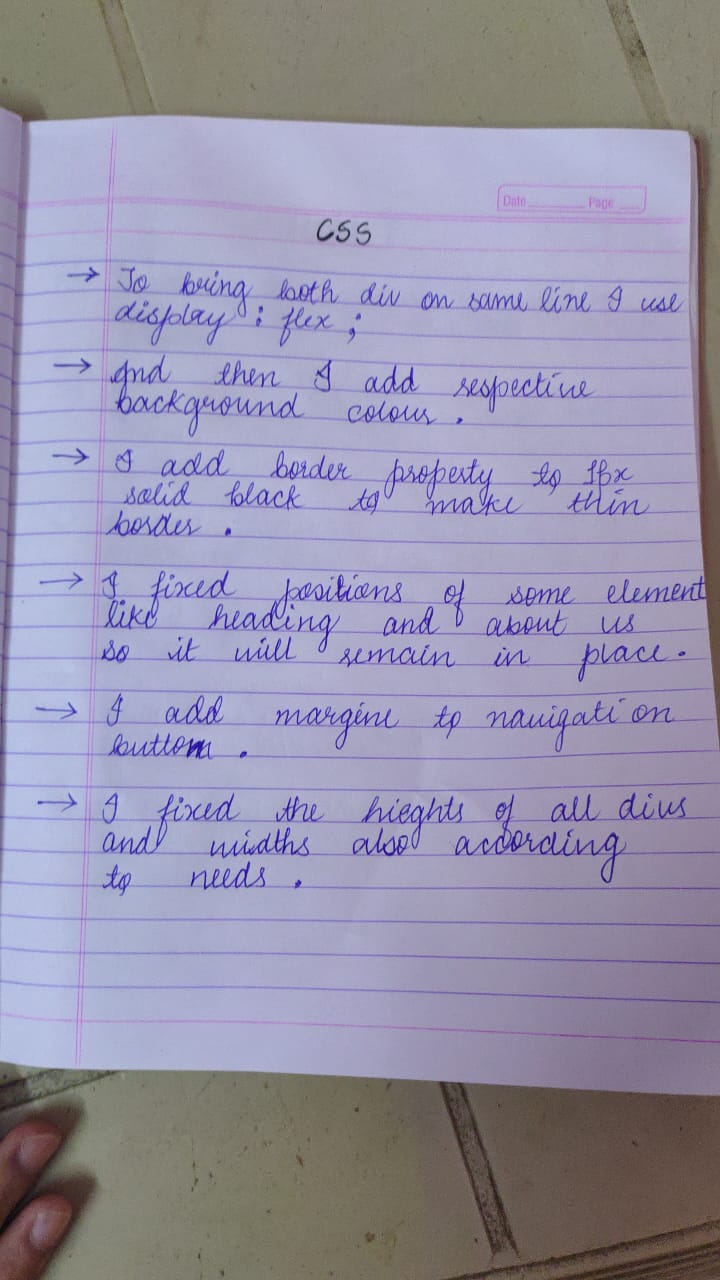 Date Page
CSS
→ To bring both div on same line I use
display : flex ;
→ And then I add respective
background colour .
→ I add border property to 1px
solid black to make thin
border .
→ I fixed positions of some element
like heading and about us
so it will remain in place .
→ I add margine to navigation
buttom .
→ I fixed the hieghts of all divs
and widths also acording
to needs .